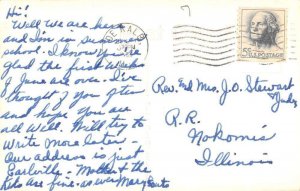 Hi!
Well we are here
and I'm in summer
school. I know you're
glad the first weeks
of June are over. I've
thought of you often
and hope you are
all well. Will try to
write more later -
Our address is just
Earlville - Mother & the
kids are fine. as ever Mary
Rev. End Mrs. J.O. Stewart
R.R.
Nokomis
Illinois
5¢ U.S. POSTAGE